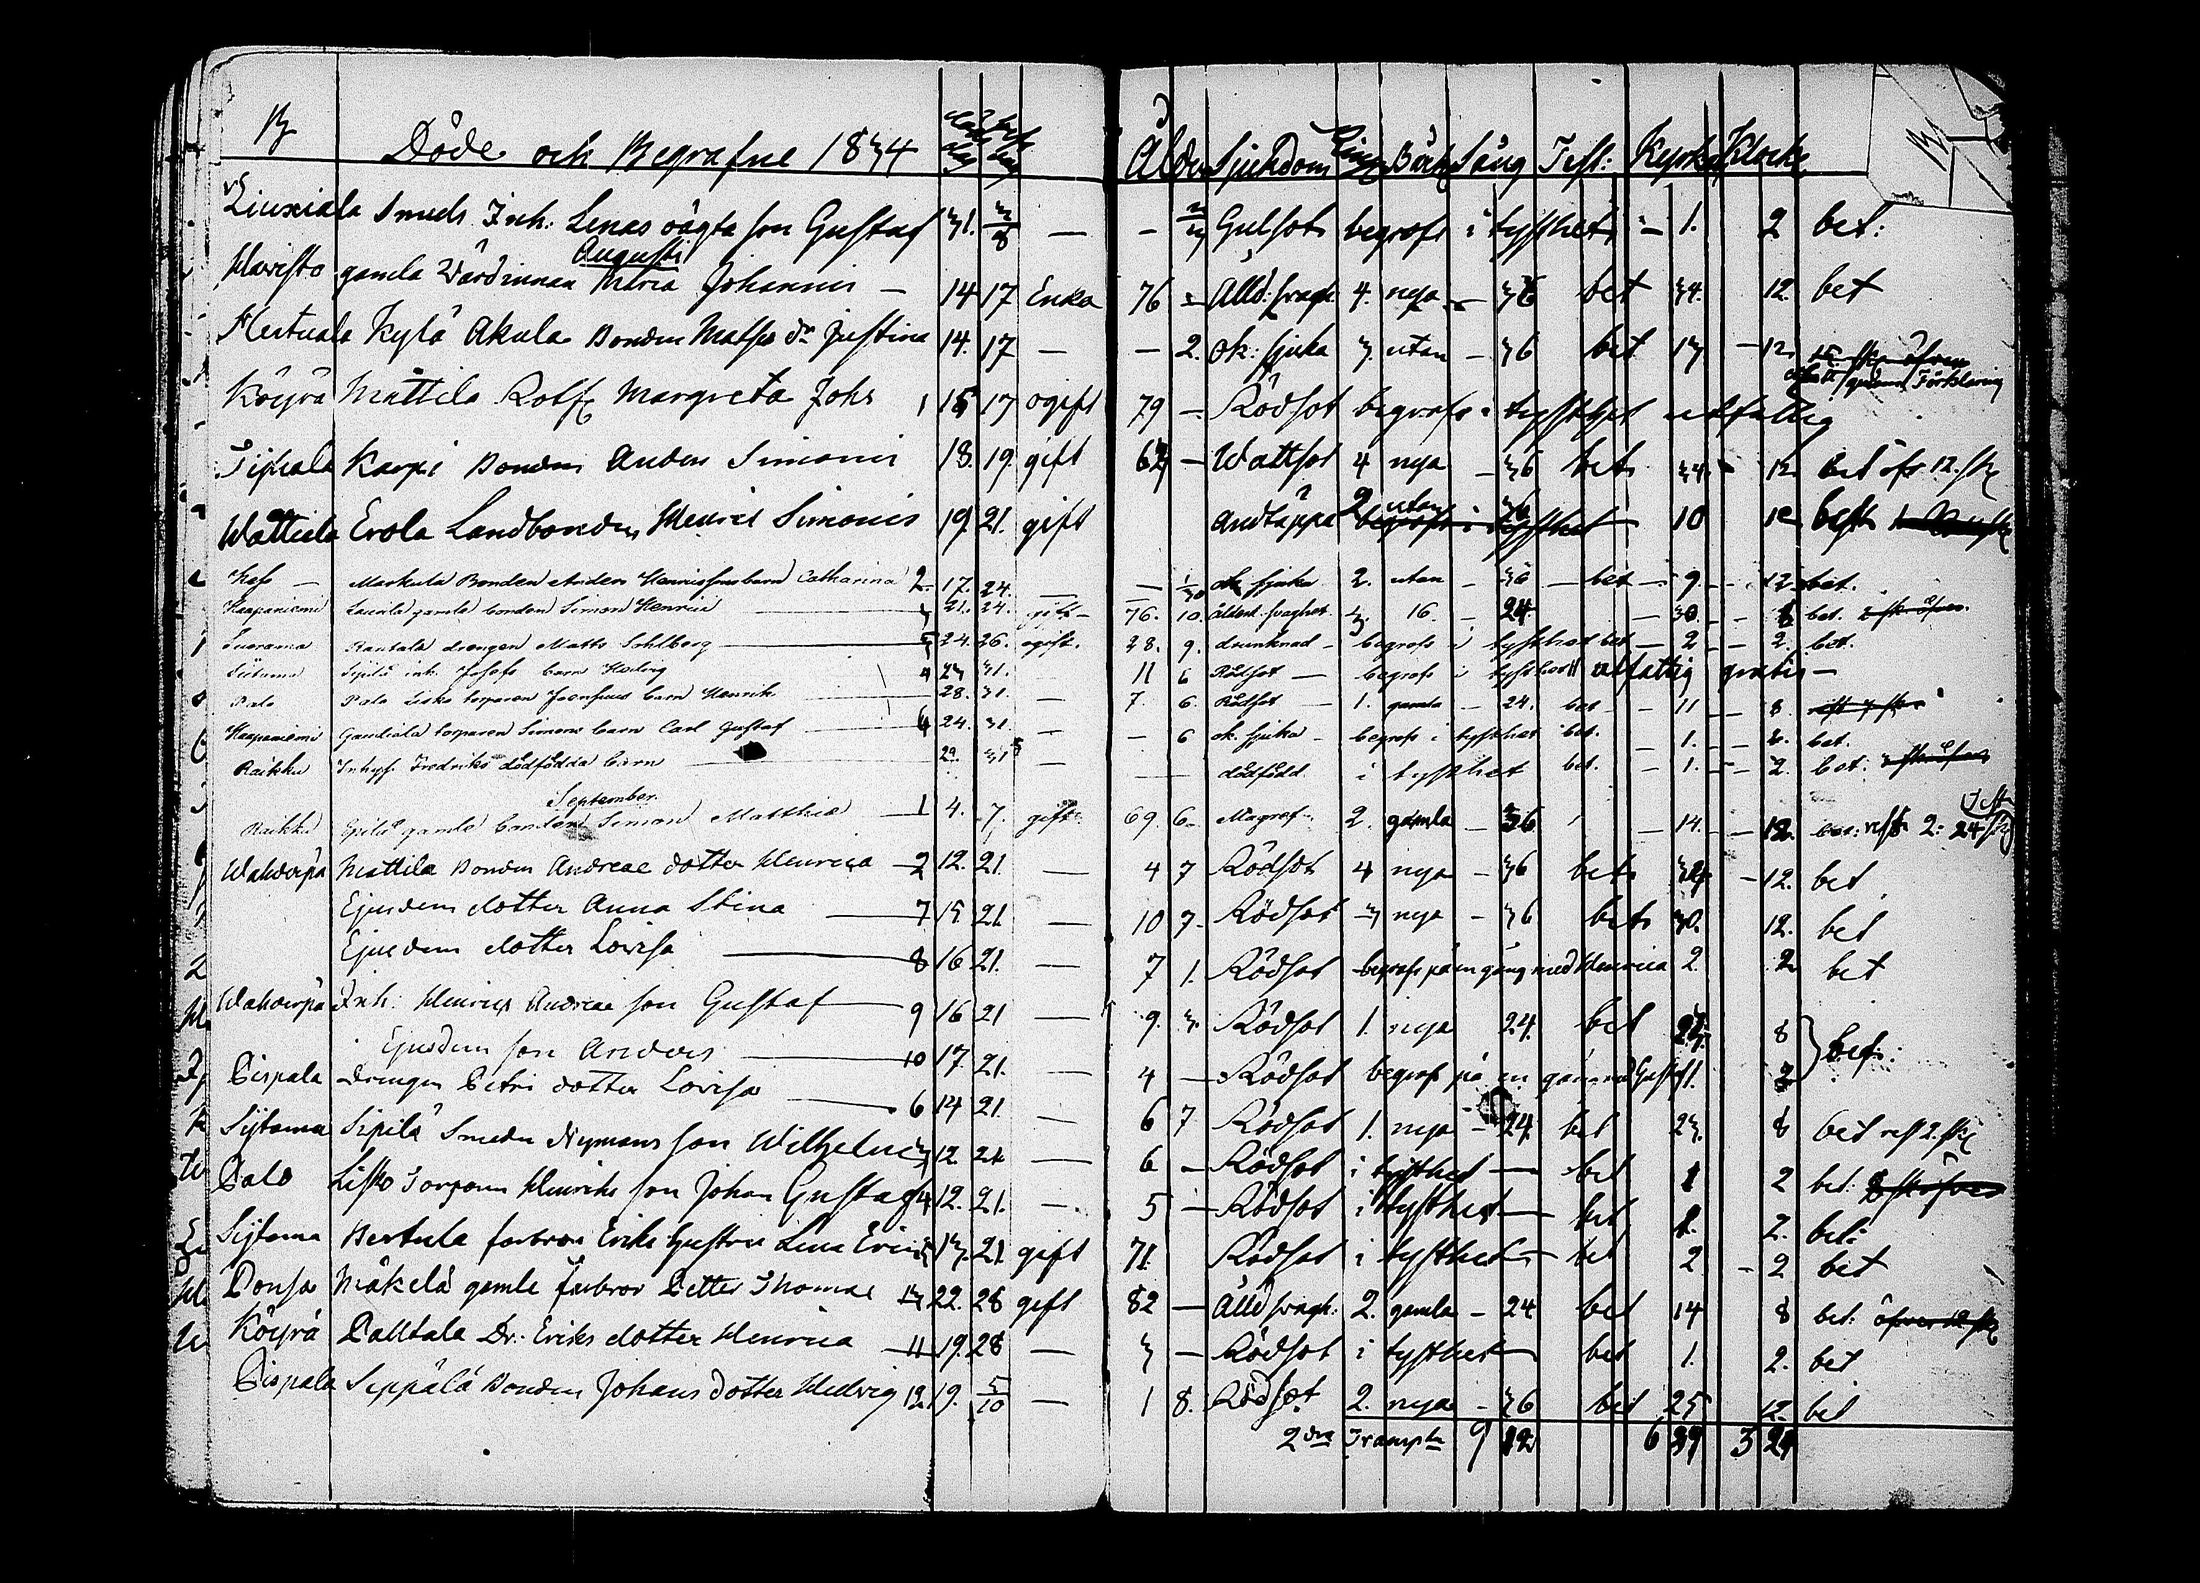 Döde och Begrafne 1834 Ålder Sjukdom Ring Bår Sång Test: Kyrka Klock
Liuxiala Smeds Inh: Lenas oägta son Gustaf 31. 3/8 — — Gulsot begrofs i tysthet — 1. 2 bet:
Augusti
Havisto gamla Värdinnan Maria Johannis — 14 17 Enka 76 — Ålld: svagh 4. nya — 36 bet 34. 12. bet
Hertuala Kylä Akula Bonden Matts dr Justina 14. 17 — — 2. ok: sjuka 3 utan — 36 bet 13 — 12
Köyrä Mattila Rotf Margreta Johs 1 15 17 ogift 79 — Rödsot begrofs i tysthet utfattig
Tiihala Karpi Bonden Anders Simonis 18. 19. gift 63 — Wattsot 4 nya — 36 bet 34 — 12 bet öfr 12. sk
Wattiala Erola Landbonden Henric Simonis 19. 21. gift Andtäppa 2 utan 36 10 12 rest
— Markula Bonden Anders Henricssons barn Catharina 2. 17. 24. — — ok. sjuka 2. utan — 36 — bet — 9. — 12. bet.
Haapaniemi Laurila gamla bonden Simon Henrici 3 21. 24. gift — 76. 10. Ålderd. svaghet 3. 16. — 24 — 30. — 8 bet.
Suorama Rautala drengen Matts Sohlberg 5 24. 26. ogift. 28. 9. drunknad — begrofs i tysthet bet — 2 — 2. bet.
Siitama Sipilä inh. Josefs barn Hedvig 4 23 31. 11 6 Rödsot — begrofs i tysthet utfattig gratis —
Palo Palo Lisko torparen barn Henrik 28. 31. — 7. 6. Rödsot — 1. gamla — 24. bet — 11 — 8.
Haapaniemi Gandiala torparen Simons barn Carl Gustaf 6 24. 31. — — 6 ok. sjuka — begrofs i tysthet bet. — 1. — 2. bet.
Raikku Inhys. Fredriks dödfödda barn 29. 31 — — dödfödd i tysthet bet. — 1. — 2. bet.
September.
Raikku Eppilä gamla bonden Simon Matthiæ 1 4. 7. gift 69. 6. Magref. 2. gamla — 36 — 14. — 12. bet: rest 2: 24 sk
Wahderpä Mattila Bonden Andreae dotter Henrica 2 12. 21. — 4 7 Rödsot 4 nya — 36 bet 34 — 12. bet
Ejusdem dotter Anna Stina 7 15 21 — 10 7. Rödsot 3 nya — 36 bet 30. 12. bet
Ejusdem dotter Lovisa 8 16 21. — 7 1. Rödsot begrofs på en gång med Henrica 2. 2 bet
Wahderpä Inh: Henrics Andreae son Gustaf 9 16 21 — 9. 3. Rödsot 1. nya 24. bet 23. 8
Ejusdem son Anders 10 17. 21. — 4 — Rödsot begrofs på en gång med Gustaf 1. 2 bet:
Pispala drengen Petri dotter Lovisa 6 14 21. — 6 7 Rödsot 1. nya — 24. bet 23. 8 bet rest 2. sk
Sijtama Sipilä Smeden Nymans son Wilhelm 3 12. 21 — 6 — Rödsot i tysthet — bet 1 2 bet:
Palo Lisko Torparen Henriks son Johan Gustaf 4 12. 21. — 5 — Rödsot i tysthet — bet 1. 2. bet:
Sijtama Bertula farbror Eriks hustru Lena Erici 5 13. 21. gift 71. Rödsot i tysthet — bet 2 — 2 bet
Ponsa Mäkelä gamle farbror Petter Thomae 13 22. 28 gift 82 — Ålld svagh: 2. gamla — 24 bet 14 8 bet:
Köyrä Palltala Dr: Eriks dotter Henrica 11 19. 28 — 3 — Rödsot i tysthet bet 1. 2. bet
Pispala Seppälä Bonden Johans dotter Hedvig 12 19. 5/10 — 1 8. Rödsot 2. nya — 36 bet 25 12. bet
2 dra 9 12 6 39 3 21